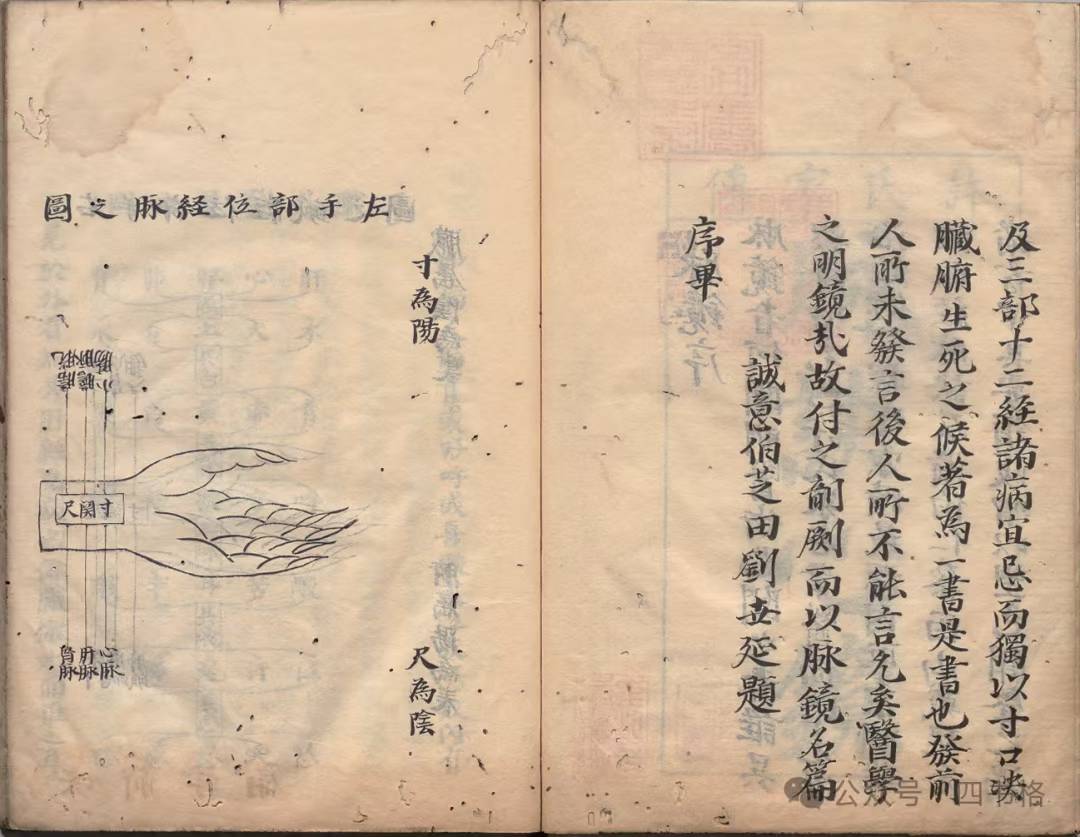 及三部十二経諸病宜忌而獨以寸口决
臓腑生死之候著為一書是書也發前
人所未發言後人所不能言允矣醫學
之明鏡㢤故付之剞劂而以脉鏡名篇
序畢
誠意伯芝田劉世延題
左手部位経脉之圖
寸為陽
尺為陰
小膓
膽
寸関尺
心脉
肝脉
腎脉
公众号
四书格